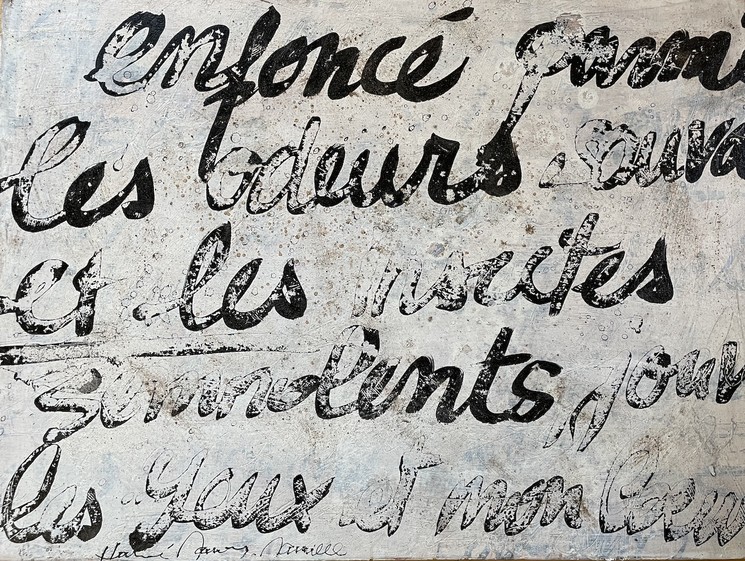 enfoncé parmi
les odeurs sauva
et les insectes
somnolents jour
les yeux et mon Coeu